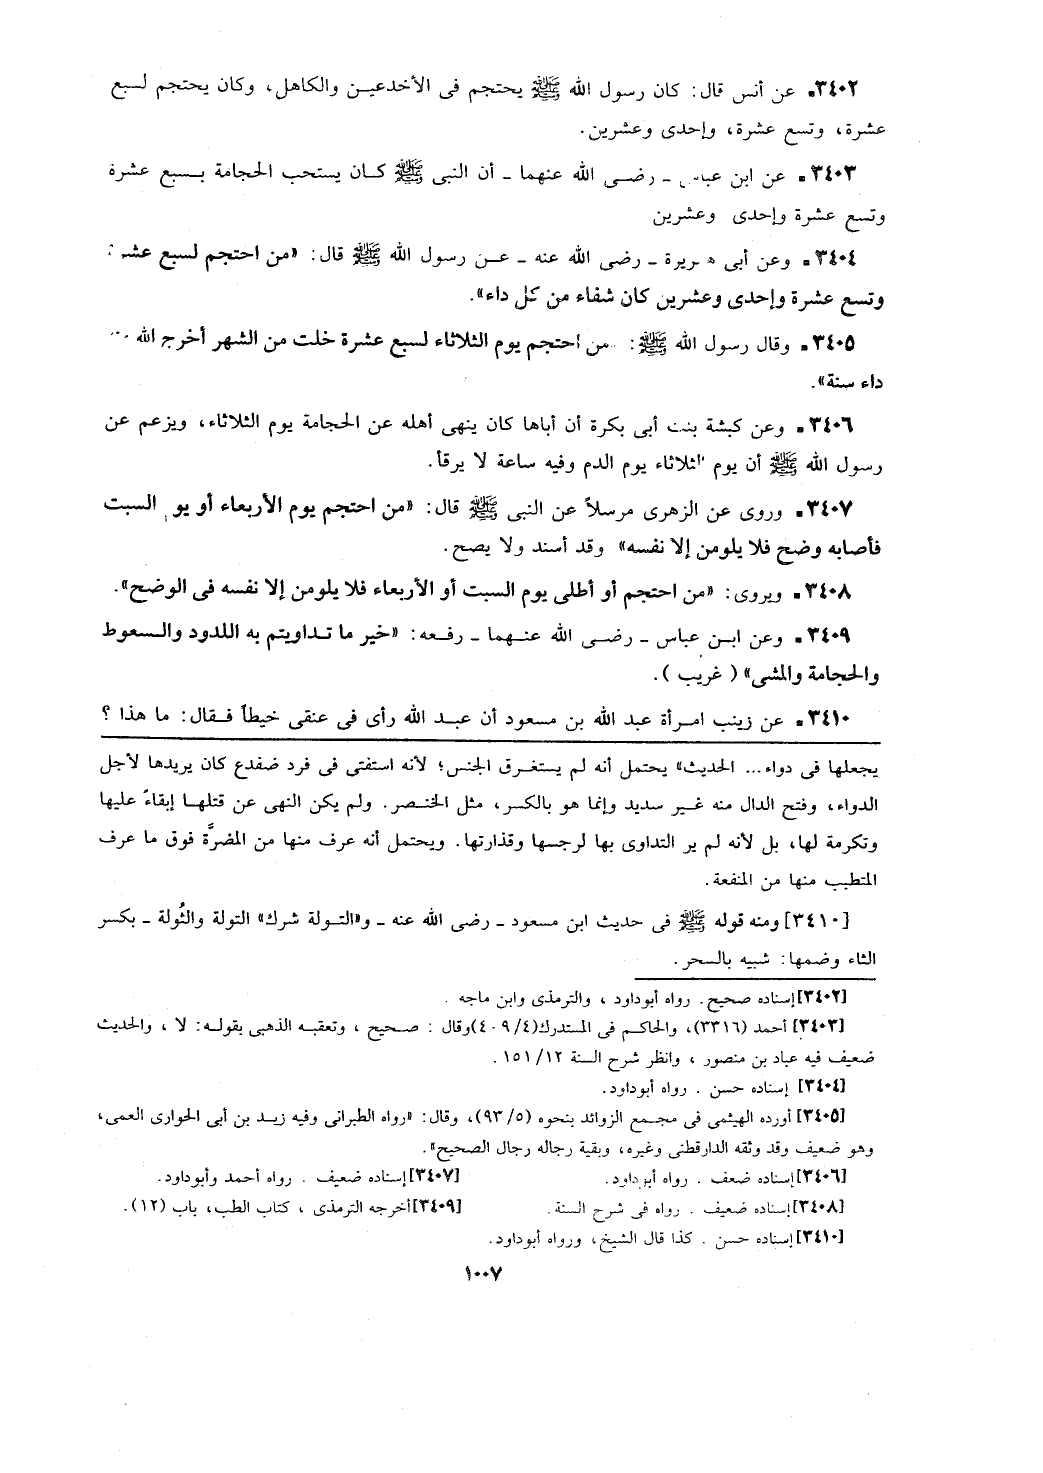 ٣٤٠٢. عن أنس قال: كان رسول الله ﷺ يحتجم فى الأخدعين والكاهل، وكان يحتجم لسبع
عشرة، وتسع عشرة، وإحدى وعشرين.
٣٤٠٣. عن ابن عباس ـ رضى الله عنهما ـ أن النبى ﷺ كان يستحب الحجامة بسبع عشرة
وتسع عشرة وإحدى وعشرين
٣٤٠٤. وعن أبى هريرة ـ رضى الله عنه ـ عن رسول الله ﷺ قال: «من احتجم لسبع عشرة
وتسع عشرة وإحدى وعشرين كان شفاء من كل داء».
٣٤٠٥. وقال رسول الله ﷺ: من احتجم يوم الثلاثاء لسبع عشرة خلت من الشهر أخرج الله
داء سنة».
٣٤٠٦. وعن كبشة بنت أبى بكرة أن أباها كان ينهى أهله عن الحجامة يوم الثلاثاء، ويزعم عن
رسول الله ﷺ أن يوم الثلاثاء يوم الدم وفيه ساعة لا يرقأ.
٣٤٠٧. وروى عن الزهرى مرسلاً عن النبى ﷺ قال: «من احتجم يوم الأربعاء أو يوم السبت
فأصابه وضح فلا يلومن إلا نفسه» وقد أسند ولا يصح.
٣٤٠٨. ويروى: «من احتجم أو أطلى يوم السبت أو الأربعاء فلا يلومن إلا نفسه فى الوضح».
٣٤٠٩. وعن ابن عباس ـ رضى الله عنهما ـ رفعه: «خير ما تداويتم به اللدود والسعوط
والحجامة والمشى» ( غريب ).
٣٤١٠. عن زينب امرأة عبد الله بن مسعود أن عبد الله رأى فى عنقى خيطاً فقال: ما هذا ؟
يجعلها فى دواء... الحديث» يحتمل أنه لم يستغرق الجنس؛ لأنه استفتى فى فرد ضفدع كان يريدها لأجل
الدواء، وفتح الدال منه غير سديد وإنما هو بالكسر، مثل الخنصر. ولم يكن النهى عن قتلها إبقاءً عليها
وتكرمة لها، بل لأنه لم ير التداوى بها لرجسها وقذارتها. ويحتمل أنه عرف منها من المضرَّة فوق ما عرف
المتطبب منها من المنفعة.
[٣٤١٠] ومنه قوله ﷺ فى حديث ابن مسعود ـ رضى الله عنه ـ و«التولة شرك» التولة والثُولة ـ بكسر
الثاء وضمها: شبيه بالسحر.
[٣٤٠٢] إسناده صحيح. رواه أبوداود ، والترمذى وابن ماجه .
[٣٤٠٣] أحمد (٣٣١٦)، والحاكم فى المستدرك(٤٠٩/٤)وقال : صحيح ، وتعقبه الذهبى بقوله: لا ، والحديث
ضعيف فيه عباد بن منصور ، وانظر شرح السنة ١٥١/١٢ .
[٣٤٠٤] إسناده حسن . رواه أبوداود.
[٣٤٠٥] أورده الهيثمى فى مجمع الزوائد بنحوه (٩٣/٥)، وقال: «رواه الطبرانى وفيه زيد بن أبى الحوارى العمى،
وهو ضعيف وقد وثقه الدارقطنى وغيره، وبقية رجاله رجال الصحيح».
[٣٤٠٦] إسناده ضعف . رواه أبوداود. [٣٤٠٧] إسناده ضعيف . رواه أحمد وأبوداود.
[٣٤٠٨] إسناده ضعيف . رواه فى شرح السنة. [٣٤٠٩] أخرجه الترمذى ، كتاب الطب، باب (١٢).
[٣٤١٠] إسناده حسن . كذا قال الشيخ، ورواه أبوداود.
١٠٠٧